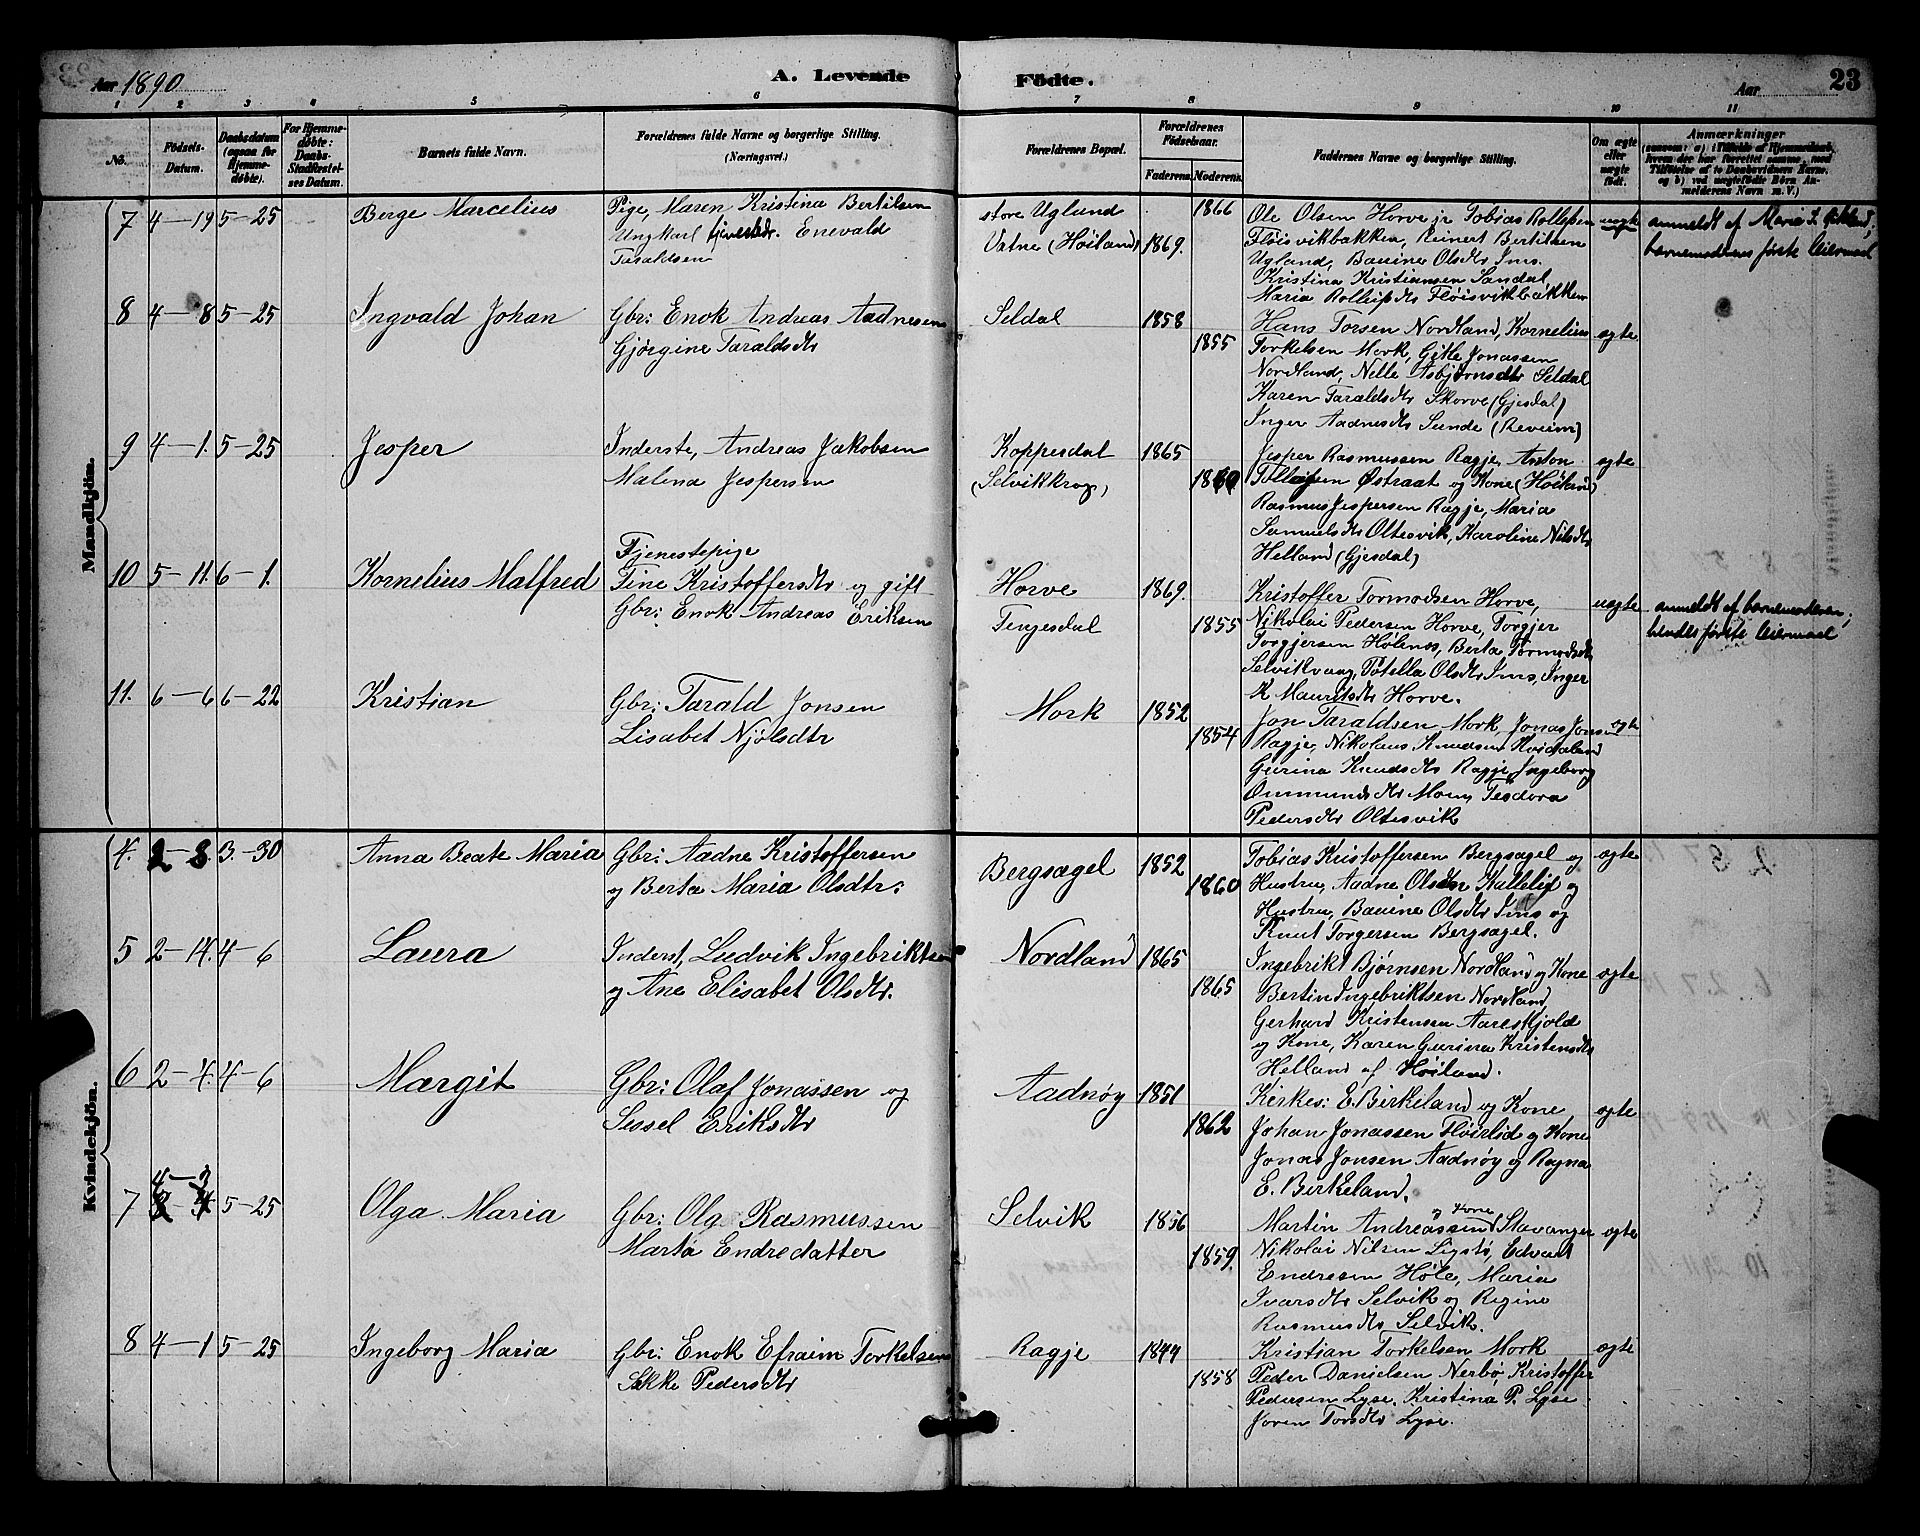 Aar 1890
A. Levende
Födte.
Aar
23
1 2 3 4 5 6 7 8 9 10 11
No.
Födsels-
Datum.
Daabsdatum
(ogsaa for
Hjemme-
döbte).
For Hjemme-
döbte:
Daabs-
Stadfæstel-
ses Datum.
Barnets fulde Navn.
Forældrenes fulde Navne og borgerlige Stilling.
(Næringsvei.)
Forældrenes Bopæl.
Forældrenes
Födselsaar.
Faderens. Moderens.
Faddernes Navne og borgerlige Stilling.
Om ægte
eller
uægte
født.
Anmærkninger
Mandkjön.
7 4-19 5-25 Berge Marcelius
Pige, Maren Kristina Bertilsen
Ungkarl Enevald
Taraldsen
store Ugland
Vatne (Höiland)
1866
1869.
Ole Olsen Horve jr Tobias Rollefsen
Fløisvikbakken, Reinert Bertilsen
Ugland, Bauine Olsdtr Ims
Kristina Kristiansen Sandal
Maria Rollefsdtr Fløisvikbakken
uegte
anmeldt af Maria
barnemoderens første leiermaal
8 4-8 5-25 Ingvald Johan
Gbr: Enok Andreas Aadnesen
Gjørgine Taraldsdtr
Seldal
1858
1855
Hans Torsen Nordland, Kornelius
Torkelsen Mork, Gitle Jonassen
Nordland, Nelle Asbjörnsdtr Seldal
Karen Taraldsdtr Skorve (Gjesdal)
Inger Aadnesdtr Sunde (Reveim)
egte
9 4-1. 5-25 Jesper
Inderste, Andreas Jakobsen
Malena Jespersen
Koppesdal
(Selvikkrog)
1865
Jesper Rasmussen Ragje, Anton
Tollefsen Østraat og Kone (Höiland)
Rasmus Jespersen Ragje, Maria
Samuelsdtr Oltesvik, Karoline Nilsdtr
Helland (Gjesdal)
egte
10 5-11. 6-1. Kornelius Malfred
Tjenestepige
Tine Kristoffersdtr og gift
Gbr: Enok Andreas Eriksen
Horve
Tengesdal
1869.
1855
Kristoffer Tormodsen Horve,
Nikolai Pedersen Horve, Torgjer
Torgjersen Hølenes, Berta Tormodsdtr
Selvikvaag, Tolella Olsdtr Ims, Inger
K Mauritsdtr Horve.
uegte
anmeldt af barnemoderen;
hendes første leiermaal
11. 6-6 6-22 Kristian
Gbr: Tarald Jonsen
Lisabet Njølsdtr
Mork
1852
1854
Jon Taraldsen Mork, Jonas Jonsen
Ragje, Nikolaus Knudsen Kvidaland
Gurina Knudsdtr Ragje, Ingeborg
Ommundsdtr Moen, Teodora
Pedersdtr Oltesvik
egte
Kvindekjön.
4. 2-8 3-30 Anna Beate Maria
Gbr: Aadne Kristoffersen
og Berta Maria Olsdtr:
Bergsagel
1852
1860
Tobias Kristoffersen Bergsagel og
Hustru, Aadne Olsen Kalleli og
Hustru, Bauine Olsdtr Ims og
Knut Torgersen Bergsagel.
egte
5 2-14. 4-6 Laura
Inderst, Ludvik Ingebriktsen
og Ane Elisabet Olsdtr.
Nordland
1865
1865
Ingebrikt Bjørnsen Nordland og Kone
Bertin Ingebriktsen Nordland,
Gerhard Kristensen Aareskjold
og Kone, Karen Gurina Kristensdtr
Helland af Höiland.
egte
6 2-4. 4-6 Margit
Gbr: Olaf Jonassen og
Sessel Eriksdtr
Aadnøy
1851
1862
Kirkes: E. Birkeland og Kone,
Johan Jonassen Fløirlid og Kone
Jonas Jonsen Aadnøy og Ragna
E. Birkeland.
egte
7 4-3 5-25 Olga Maria
Gbr: Ole Rasmussen
Marta Endredatter
Selvik
1856
1859.
og Kone
Martin Andreassen Stavanger
Nikolai Nilsen Ligstø, Edvart
Endresen Høle, Maria
Ivarsdtr Selvik og Regine
Rasmusdtr Selvik.
egte
8 4-1 5-25 Ingeborg Maria
Gbr: Enok Efraim Torkelsen
Sikke Pedersdtr
Ragje
1849
1858
Kristian Torkelsen Mork
Peder Danielsen Nerbø, Kristoffer
Pedersen Lyse. Kristina P. Lyse
Joren Torsdtr Lyse.
egte